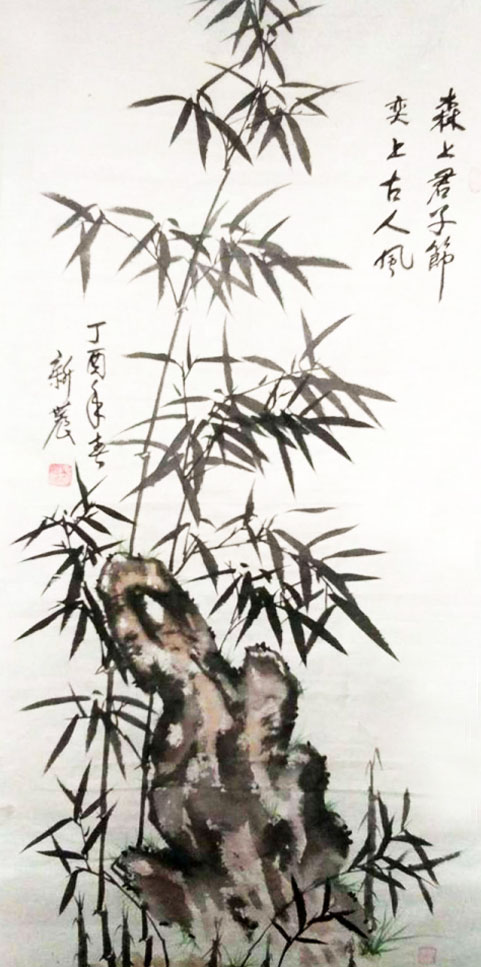 森上君子節
奕上古人風
丁酉年春
新農